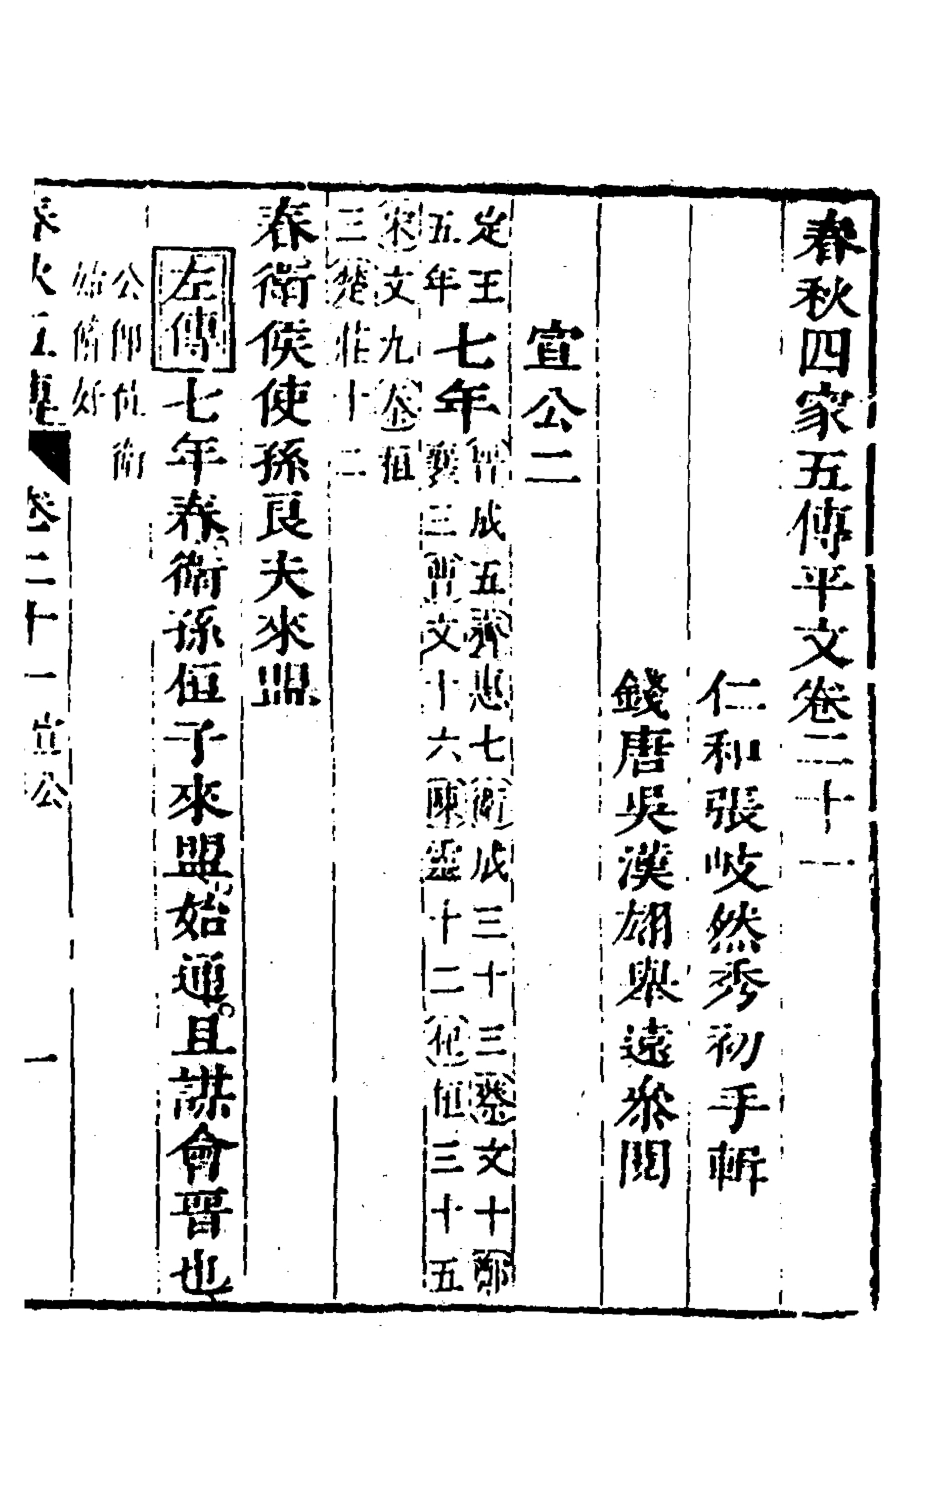 春秋四家五傳平文卷二十一
仁和張岐然秀初手輯
錢唐吳漢翃舉遠叅閱
宣公二
定王
五年
七年
晉成五齊惠七衛成三十三蔡文十鄭
襄三曹文十六陳靈十二杞桓三十五
宋文九秦桓
三楚莊十二
春衛侯使孫良夫來盟
左傳七年春衛孫桓子來盟始通且謀會晉也
公卽位衛
始脩好
春秋五傳
卷二十一宣公
一